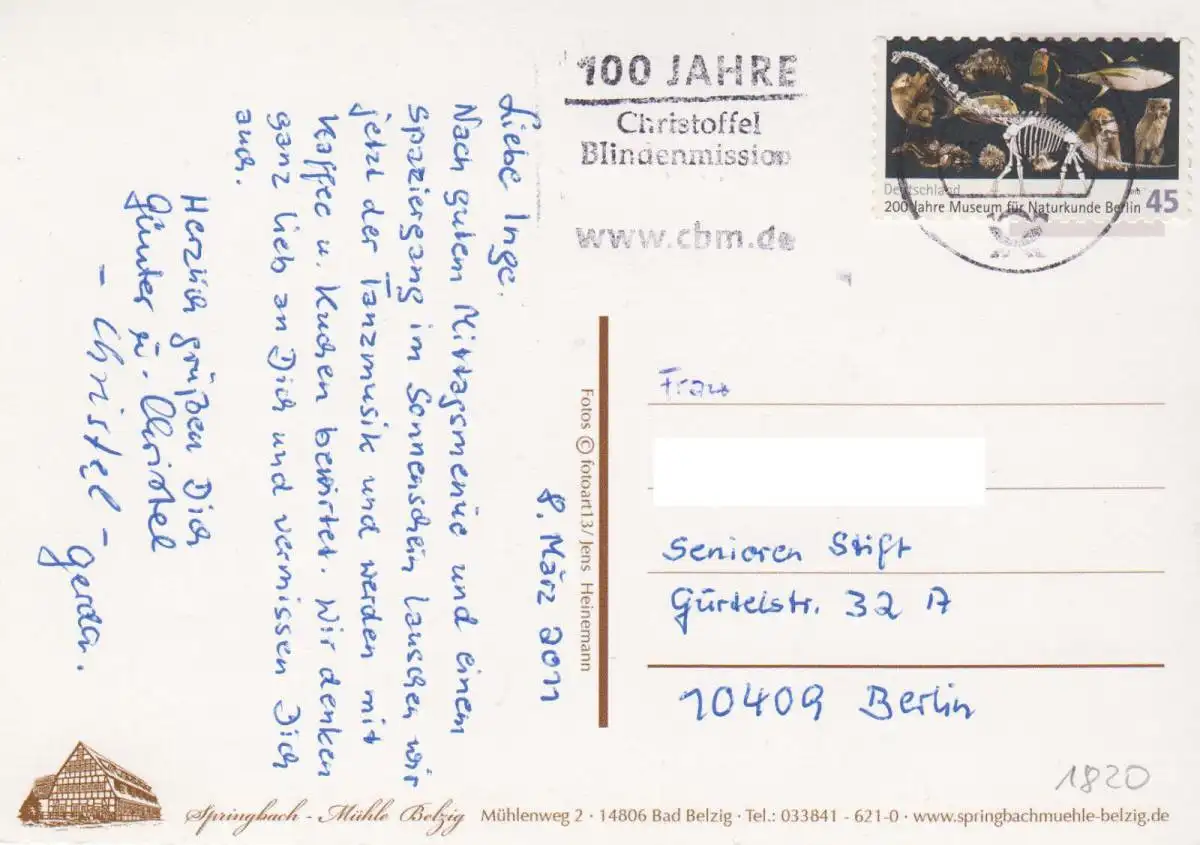 100 JAHRE
Christoffel
Blindenmission
www.cbm.de
Deutschland
200 Jahre Museum für Naturkunde Berlin 45
8. März 2011
Liebe Inge.
Nach gutem Mittagsmenüe und einem
Spaziergang im Sonnenschein lauschen wir
jetzt der Tanzmusik und werden mit
Kaffee u. Kuchen bewirtet. Wir denken
ganz lieb an Dich und vermissen Dich
auch.
Herzlich grüßen Dich
Günter u. Christel
- Christel -
Gerda.
Fotos © fotoart13/ Jens Heinemann
Frau
Senioren Stift
Gürtelstr. 32 A
10409 Berlin
1820
Springbach - Mühle Belzig Mühlenweg 2 · 14806 Bad Belzig · Tel.: 033841 - 621-0 · www.springbachmuehle-belzig.de